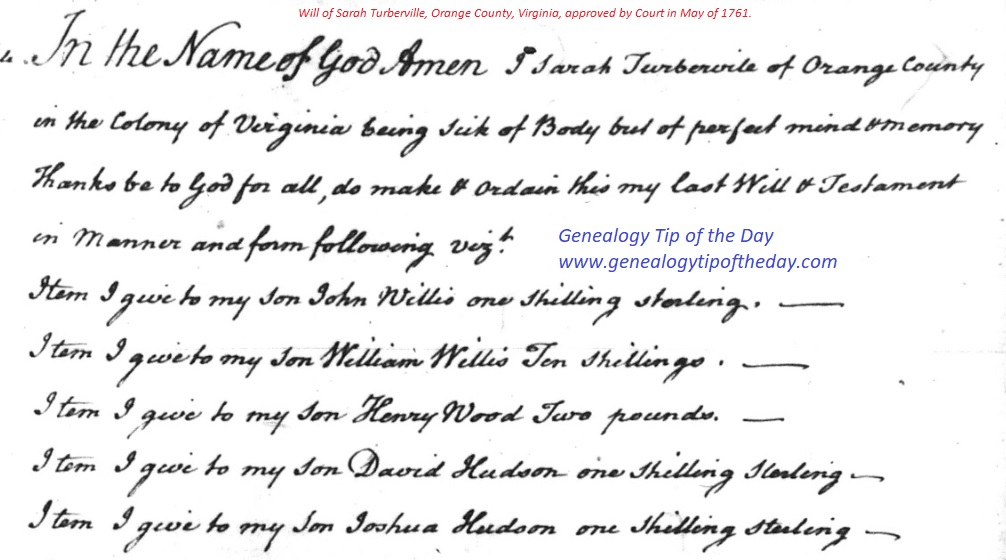 Will of Sarah Turberville, Orange County, Virginia, approved by Court in May of 1761.
In the Name of God Amen I Sarah Turbervile of Orange County
in the Colony of Virginia being sick of Body but of perfect mind & memory
Thanks be to God for all, do make & ordain this my last Will & Testament
in Manner and form following vizt.
Genealogy Tip of the Day
www.genealogytipoftheday.com
Item I give to my son John Willis one shilling sterling.
Item I give to my son William Willis Ten shillings.
Item I give to my son Henry Wood Two pounds.
Item I give to my son David Hudson one shilling sterling
Item I give to my son Joshua Hudson one shilling sterling